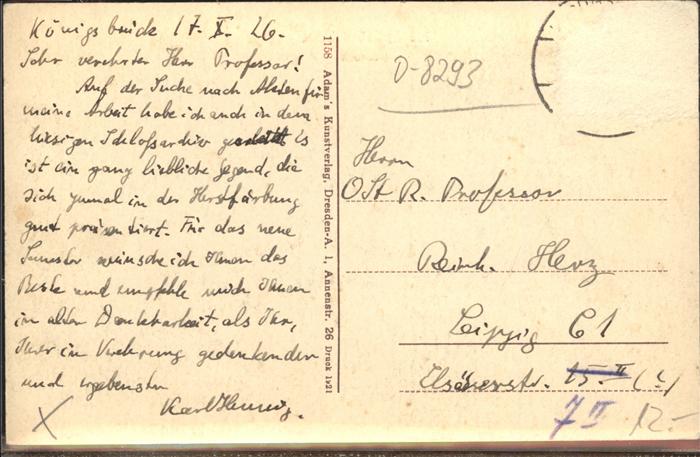 Königsbrück 17. X. 26.
Sehr verehrter Herr Professor!
Auf der Suche nach Akten für
meine Arbeit habe ich auch in dem
hiesigen Schlossarchiv Es
ist ein ganz liebliche Gegend, die
sich zumal in der Herbstfärbung
gut präsentiert. Für das neue
Semester wünsche ich Ihnen das
Beste und empfehle mich Ihnen
in alter Dankbarkeit, als Ihr,
Ihrer in Verehrung gedenkender
und ergebenster
Karl
X
1158 Adam's Kunstverlag, Dresden-A. 1, Annenstr. 26 Druck 1x21
D-8293
Herrn
OSt R. Professor
Reinh. Herz
Leipzig C 1
15. II
7 II 12.-